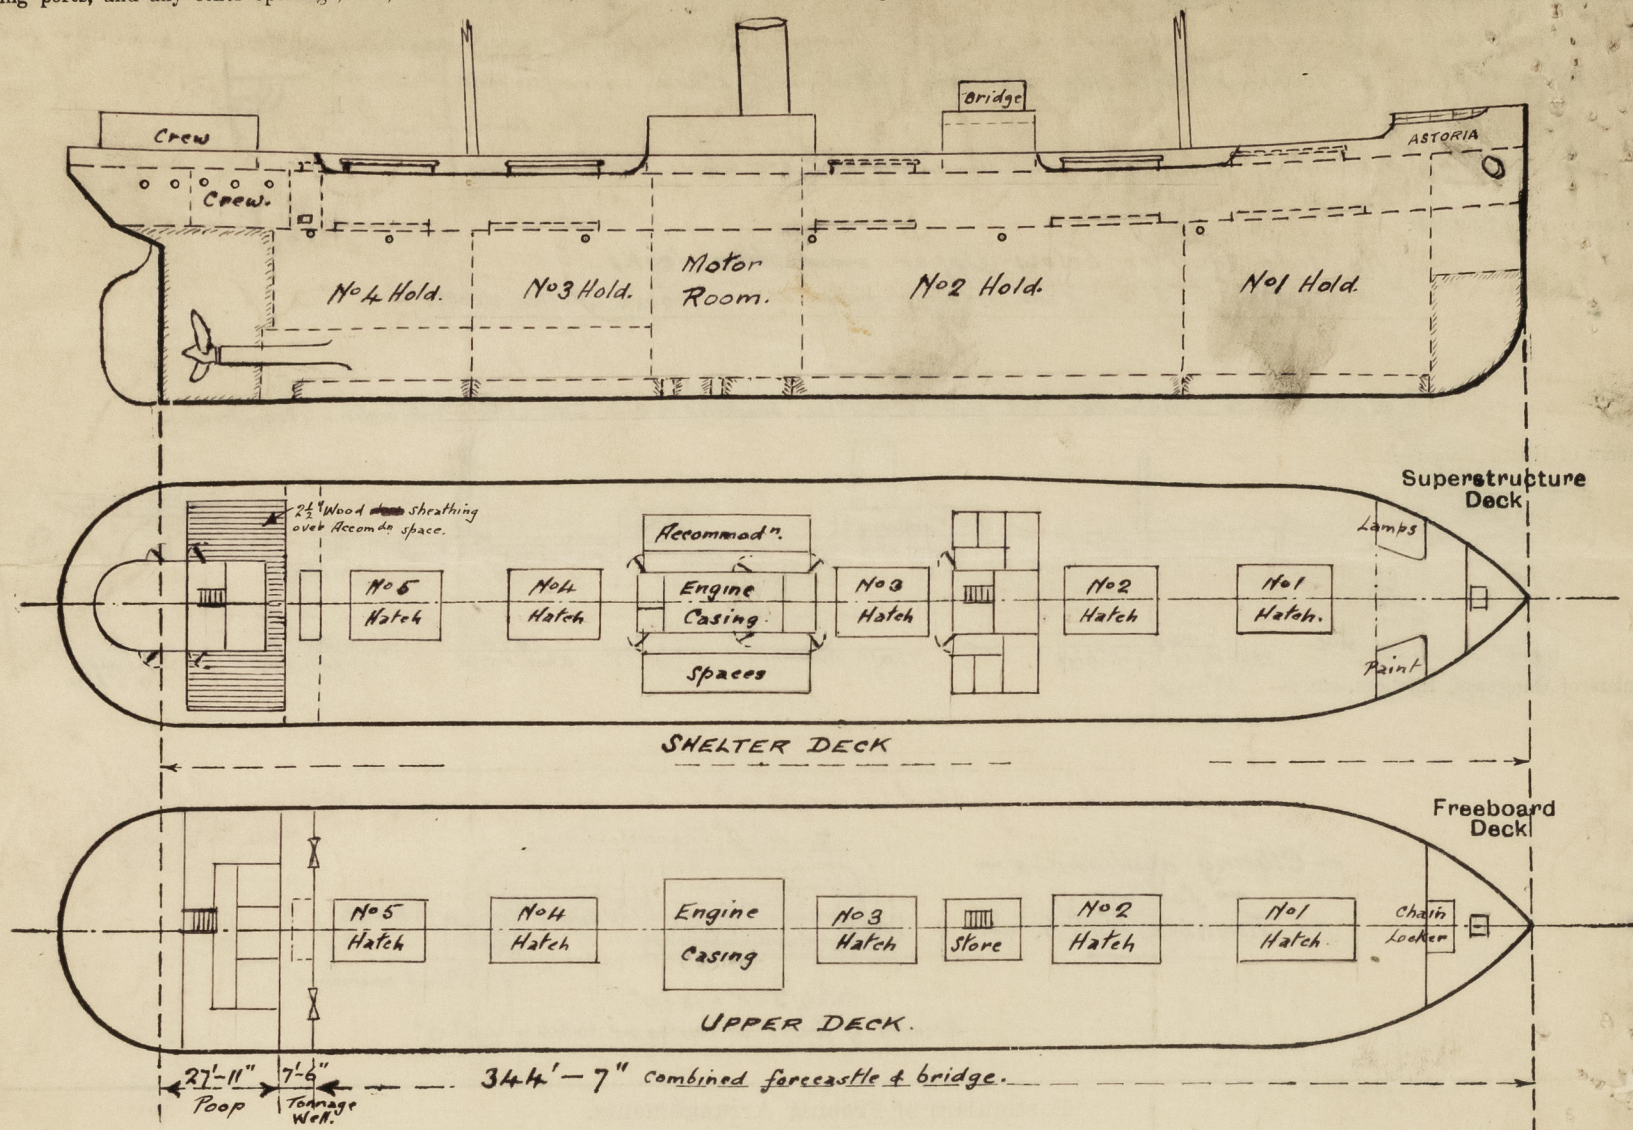 ing ports, and any
Bridge
Crew
ASTORIA
Crew.
Motor
Room.
No 4 Hold.
No 3 Hold.
No 2 Hold.
No 1 Hold.
Superstructure
Deck
2½" Wood sheathing
over Accomdn space.
Lamps
Accommodn.
No 5
Hatch
No 4
Hatch
Engine
Casing
No 3
Hatch
No 2
Hatch
No 1
Hatch.
Spaces
Paint
SHELTER DECK
Freeboard
Deck
No 5
Hatch
No 4
Hatch
Engine
Casing
No 3
Hatch
Store
No 2
Hatch
No 1
Hatch
Chain
Locker
UPPER DECK.
27'-11"
Poop
7'-6"
Tonnage
Well.
344'-7" combined forecastle & bridge.